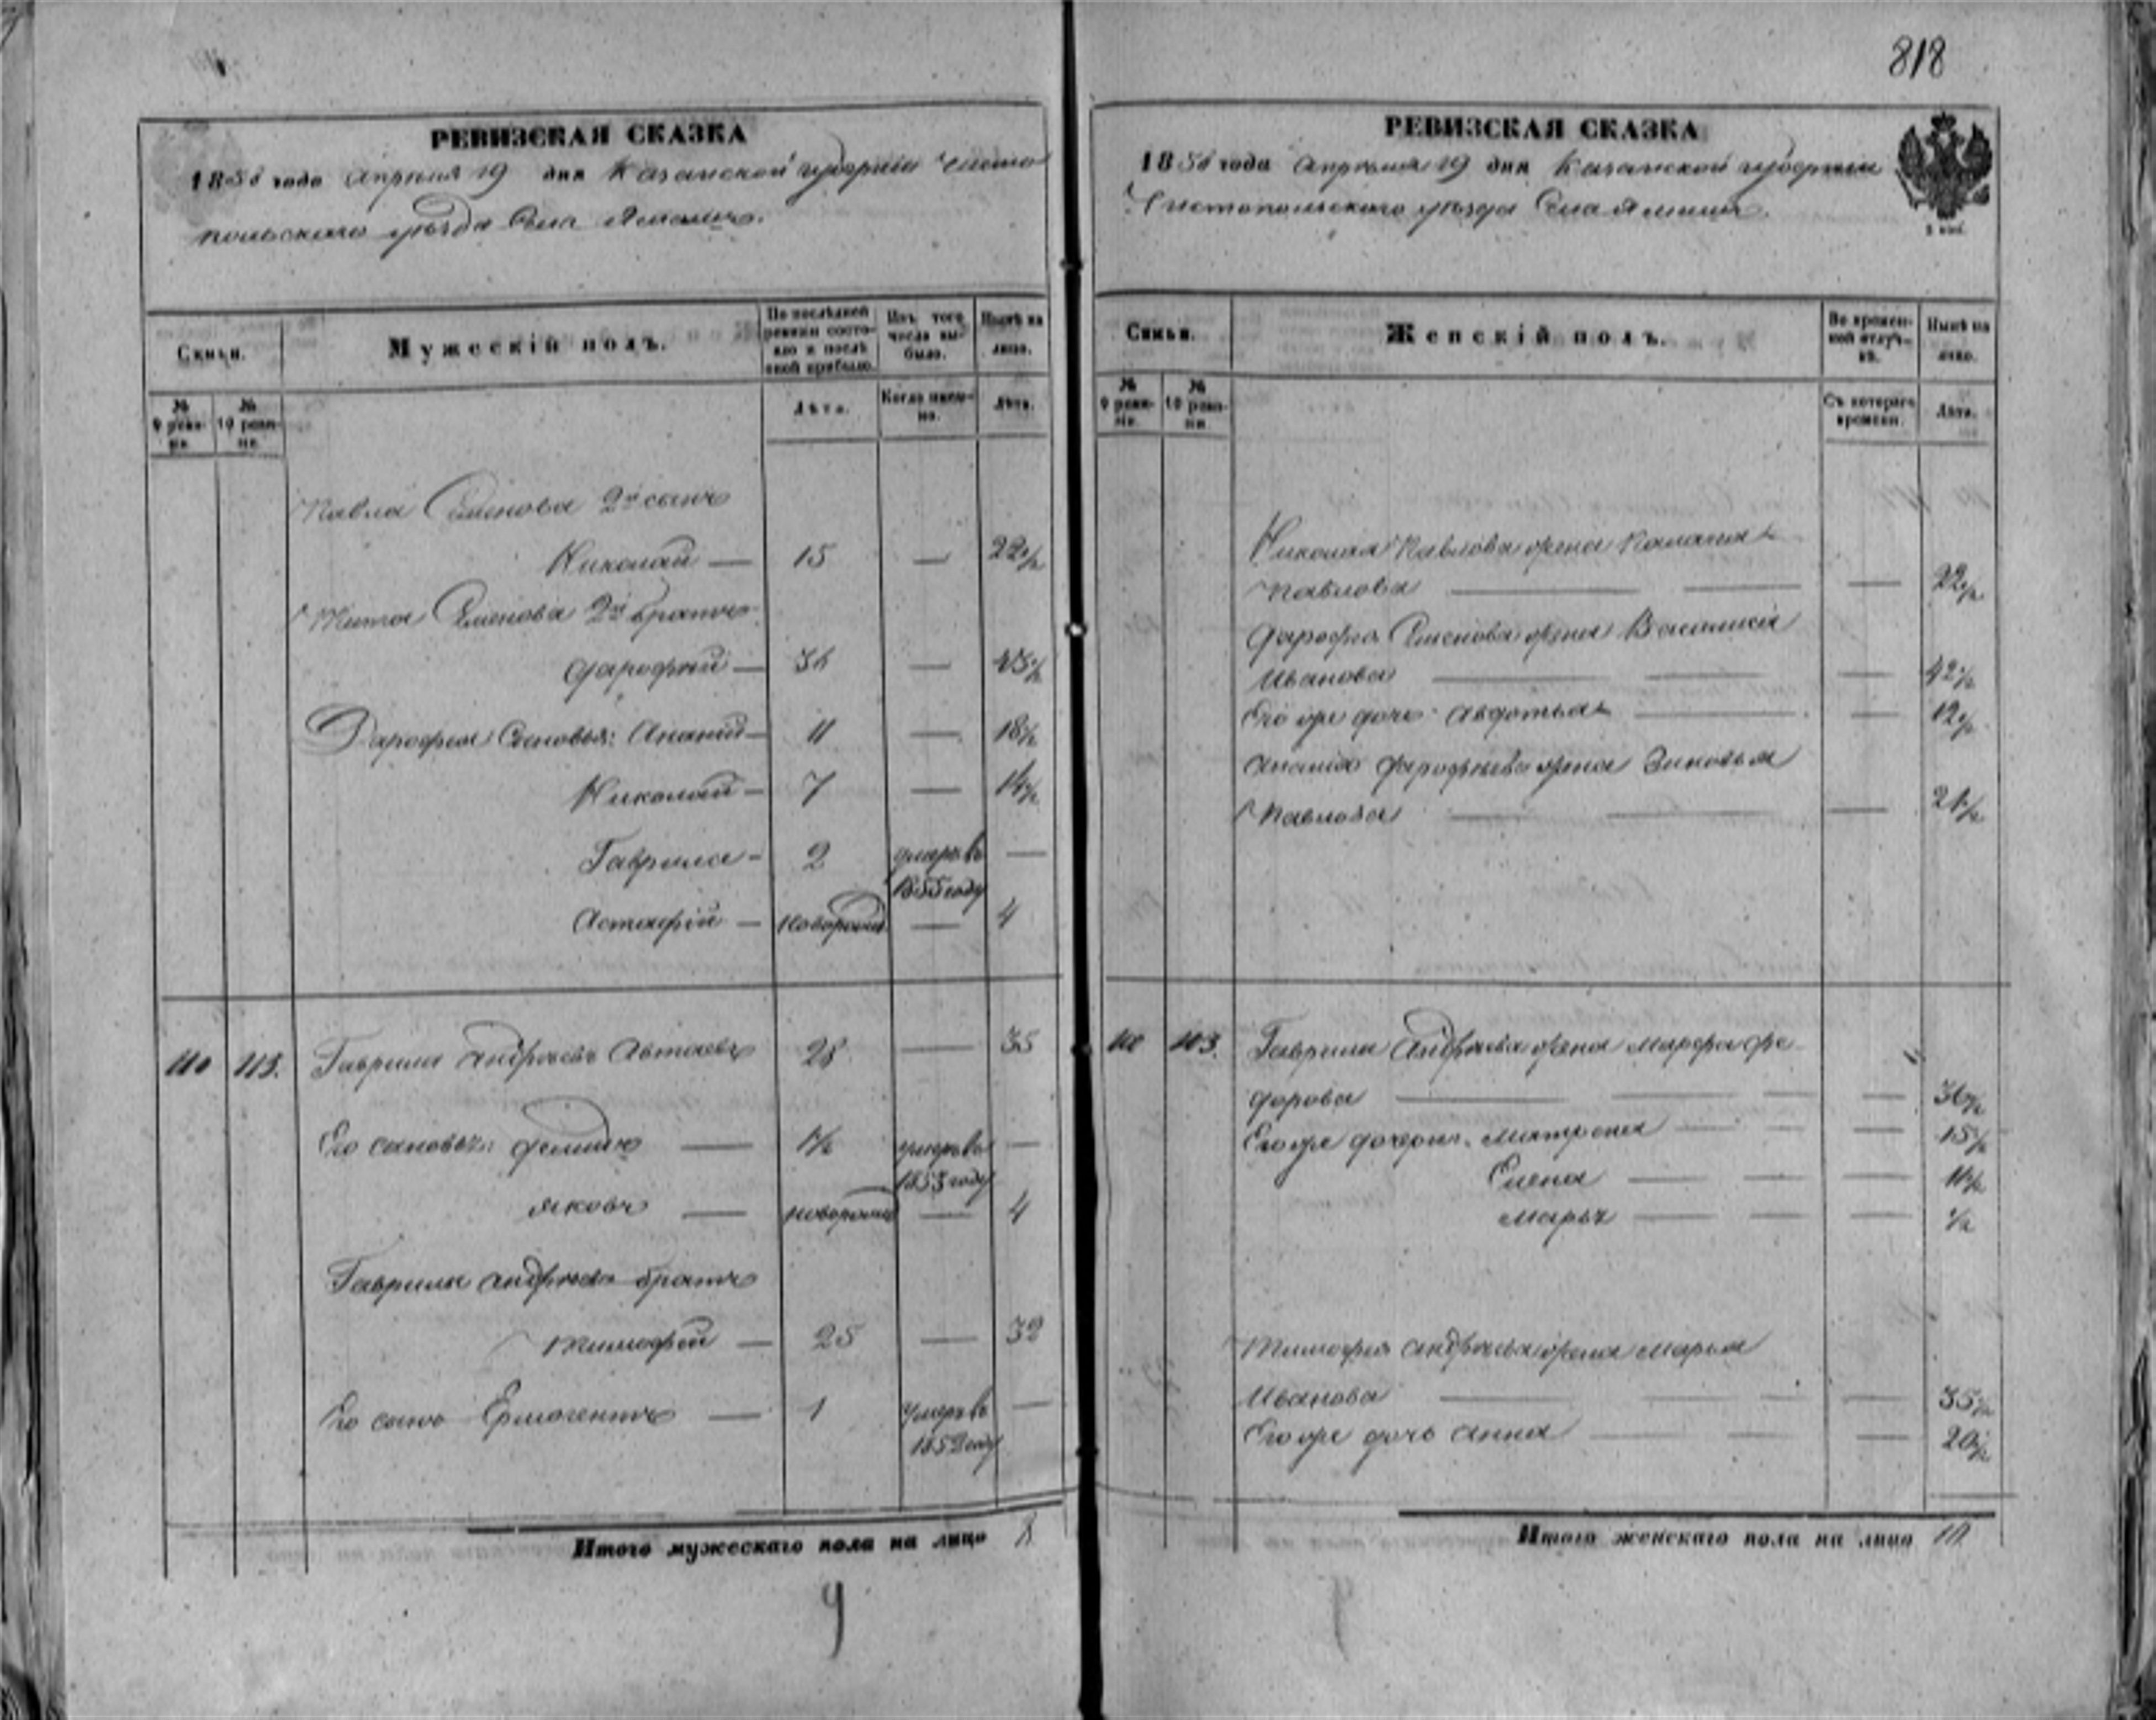 818
РЕВИЗСКАЯ СКАЗКА
1858 года Апреля 19 дня Казанской губернии Чисто
польскаго уезда Села
Семьи.
Мужескій полъ.
По последней ревизіи состояло и после оной прибыло.
Изъ того числа выбыло.
Ныне на лицо.
№ 9 ревизіи.
№ 10 ревизіи.
Лета.
Когда именно.
Лета.
Павла Семенова 2й сынъ
Николай — 15 — 22 1/2
Тита Семенова 2й братъ
Дарофей — 36 — 43 1/2
Дарофея Сыновья: Ананій — 11 — 18 1/2
Николай — 7 — 14 1/2
Гаврила — 2 умеръ въ 1855 году —
Астафій — новорожд — 4
110 113. Гаврила Андреевъ 28 — 35
Его сыновья: 1/2 умеръ въ 1853 году —
Яковъ — новорожд — 4
Гаврилы Андреева братъ
Тимофей — 25 — 32
Его сынъ Ермогентъ — 1 умеръ въ 1852 году —
Итого мужескаго пола на лицо 8
9
РЕВИЗСКАЯ СКАЗКА
1858 года Апреля 19 дня Казанской губернии
Чистопольскаго уезда Села
Семьи.
Женскій полъ.
Во временной отлучке.
Ныне на лицо.
№ 9 ревизіи.
№ 10 ревизіи.
Съ котораго времени.
Лета.
Николая Павлова жена Палагия
Павлова — — — 22 1/2
Дарофея Семенова жена Василиса
Иванова — — — 42 1/2
Его же дочь Авдотья — — 12 1/2
Ананія Дарофеева жена Зиновья
Павлова — — — 21 1/2
110 113. Гаврилы Андреева жена Марфа Фе
дорова — — — 36 1/2
Его же дочери: Матрена — — 15 1/2
Елена — — — 11 1/2
Марья — — — 1/2
Тимофея Андреева жена Марья
Иванова — — — 35 1/2
Его же дочь Анна — — — 20 1/2
Итого женскаго пола на лицо 10